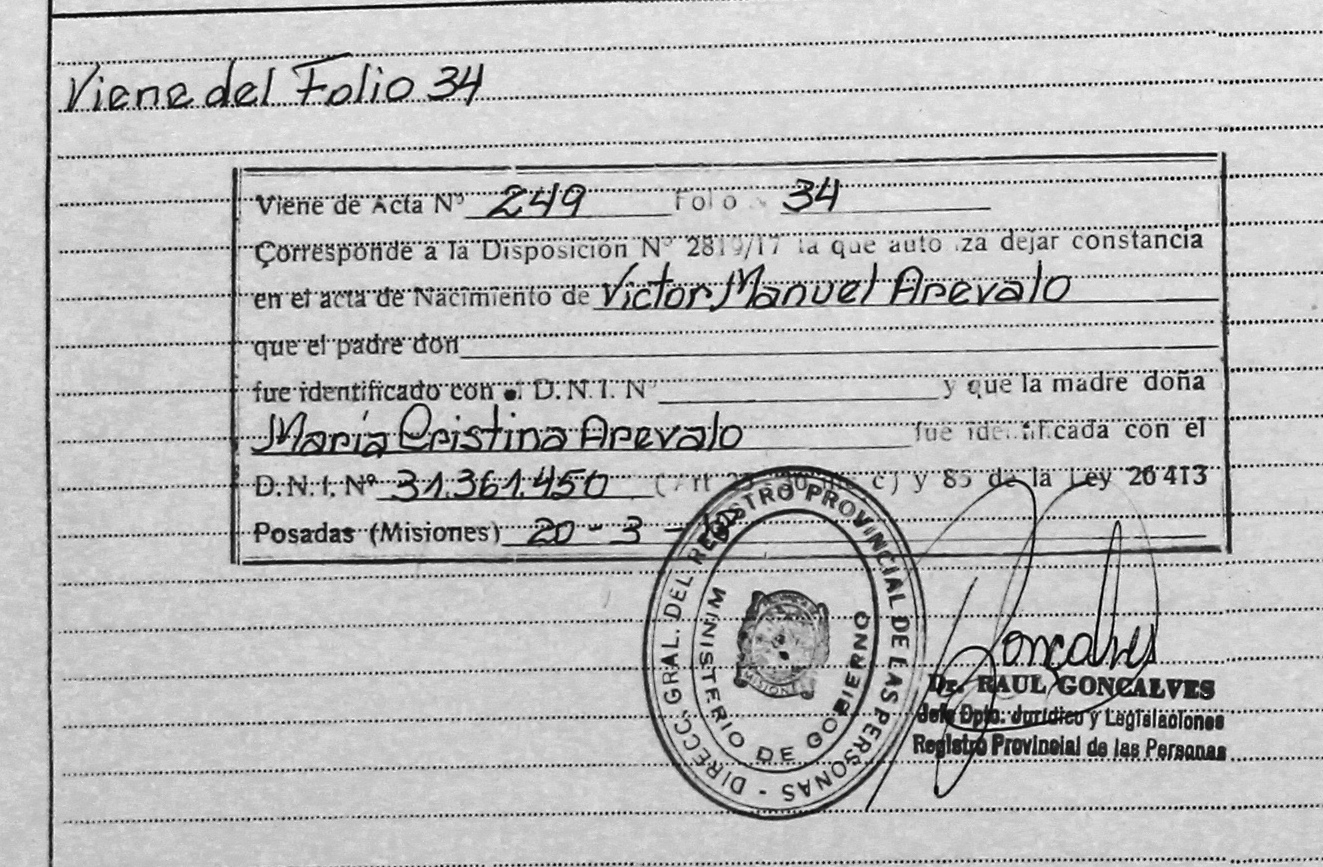 Viene del Folio 34
Viene de Acta Nº 249 Folio 34
Corresponde a la Disposición Nº 2819/17 la que autoriza dejar constancia
en el acta de Nacimiento de Victor Manuel Arevalo
que el padre don
fue identificado con el D.N.I. Nº y que la madre doña
María Cristina Arevalo fue identificada con el
D.N.I. Nº 31.361.450 c) y 85 de la Ley 26413
Posadas (Misiones) 20 - 3 -
DIRECC. GRAL. DEL REGISTRO PROVINCIAL DE LAS PERSONAS -
MINISTERIO DE GOBIERNO
MISIONES
Goncalves
Dr. RAUL GONCALVES
Jefe Dpto. Jurídico y Legislaciones
Registro Provincial de las Personas